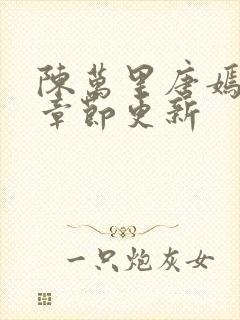 陳萬里唐嫣
章節更新
一只炮灰女